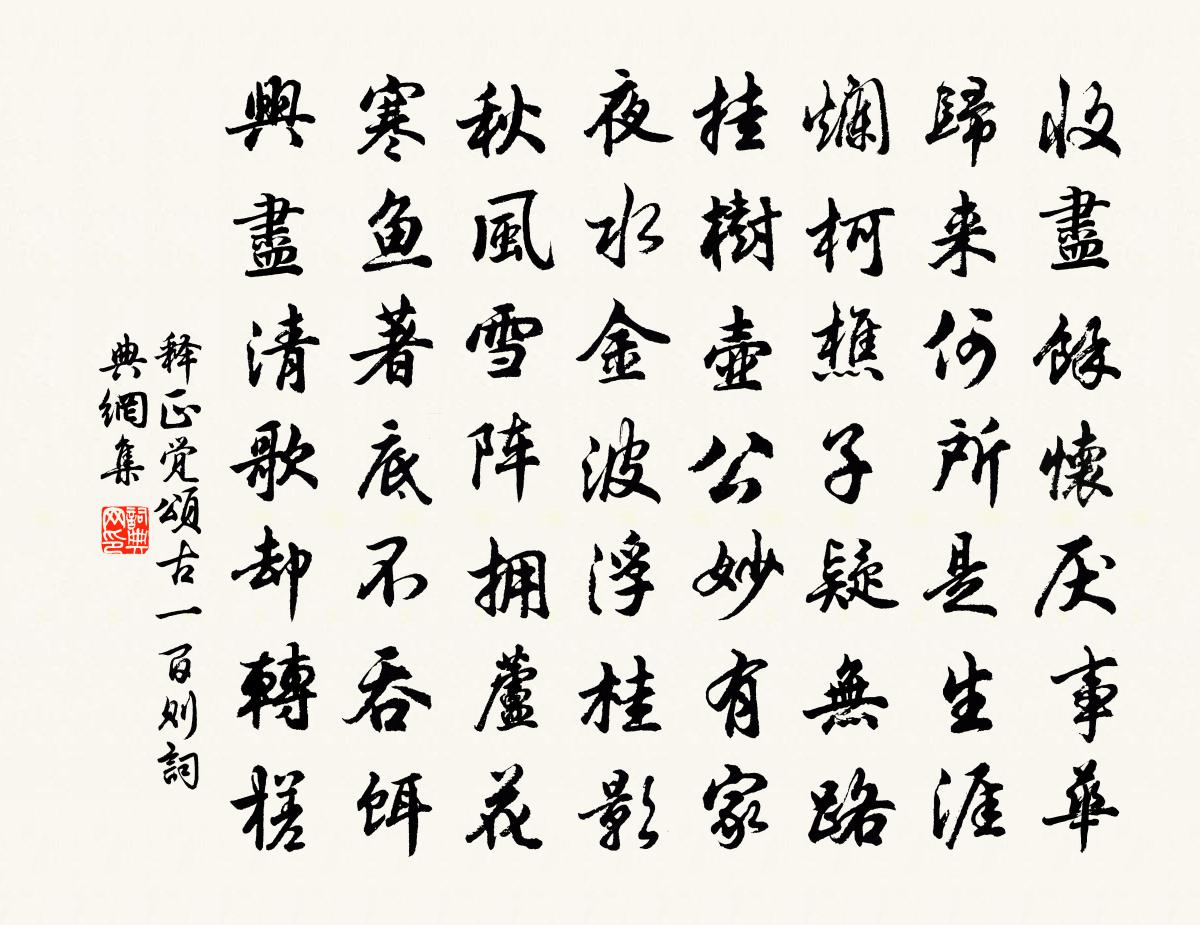 收盡餘懷厌事華
歸来何所是生涯
爛柯樵子疑無路
挂樹壺公妙有家
夜水金波浮桂影
秋風雪阵拥蘆花
寒鱼著底不吞饵
興盡清歌却轉槎
释正觉頌古一百则詞
典網集
詞典
网印